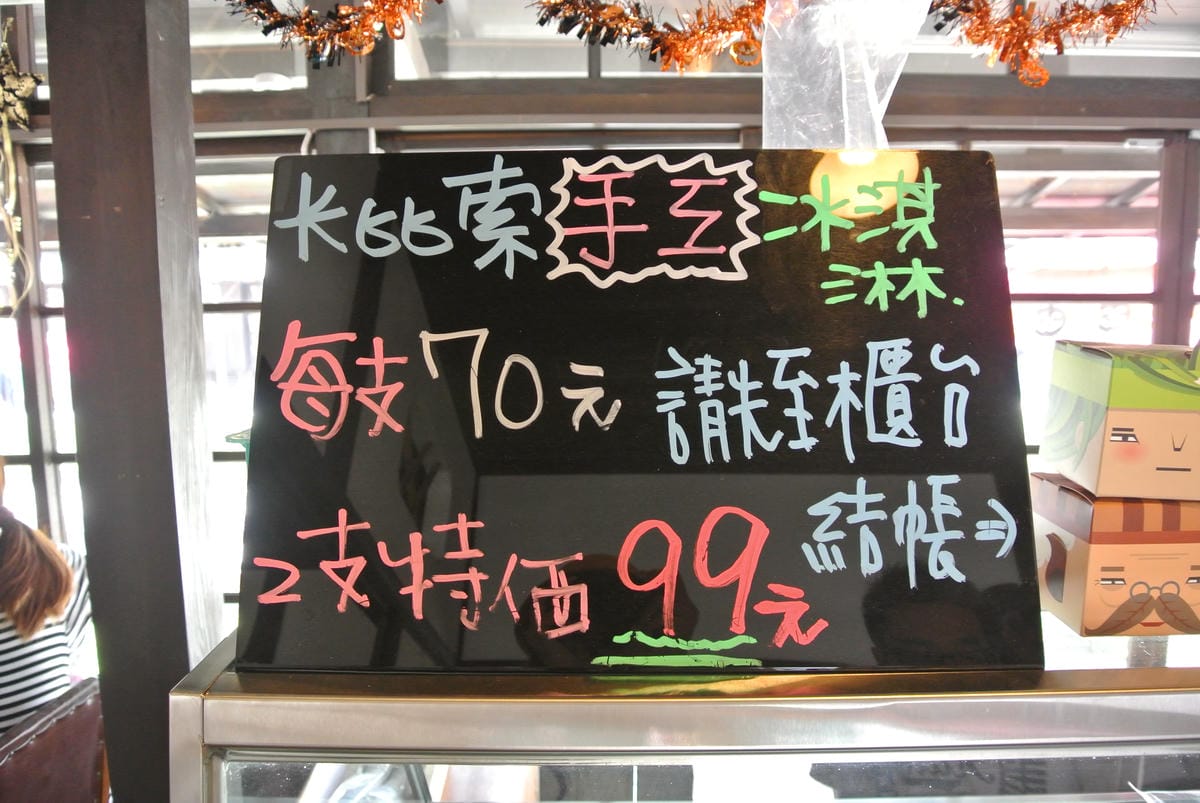 卡比索手工冰淇
淋.
每支70元
請先至櫃台
結帳⇒
2支特価99元